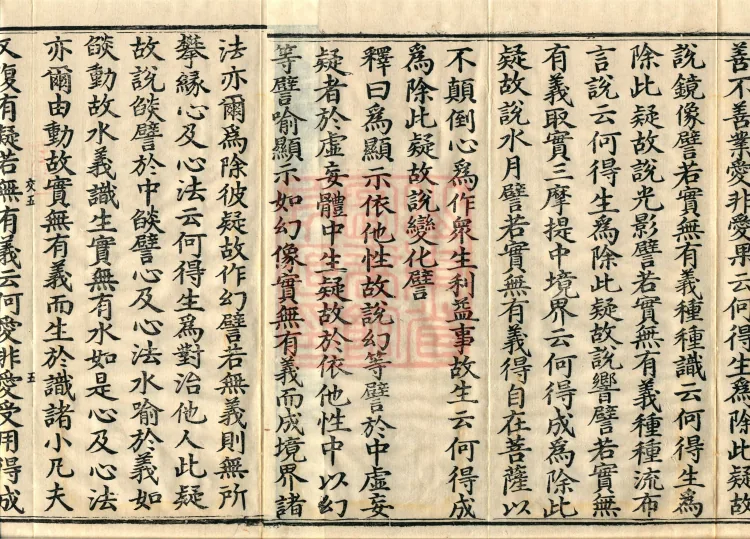 善不善業愛非愛果云何得生爲除此疑故
說鏡像譬若實無有義種種識云何得生爲
除此疑故說光影譬若實無有義種種流布
言說云何得生爲除此疑故說響譬若實無
有義取實三摩提中境界云何得成爲除此
疑故說水月譬若實無有義得自在菩薩以
不顛倒心爲作衆生利益事故生云何得成
爲除此疑故說變化譬
釋曰爲顯示依他性故說幻等譬於中虛妄
疑者於虛妄體中生疑故於依他性中以幻
等譬喻顯示如幻像實無有義而成境界諸
法亦爾爲除彼疑故作幻譬若無義則無所
攀緣心及心法云何得生爲對治他人此疑
故說燄譬於中燄譬心及心法水喻於義如
燄動故水義識生實無有水如是心及心法
亦爾由動故實無有義而生於識諸小凡夫
又復有疑若無有義云何愛非愛受用得成